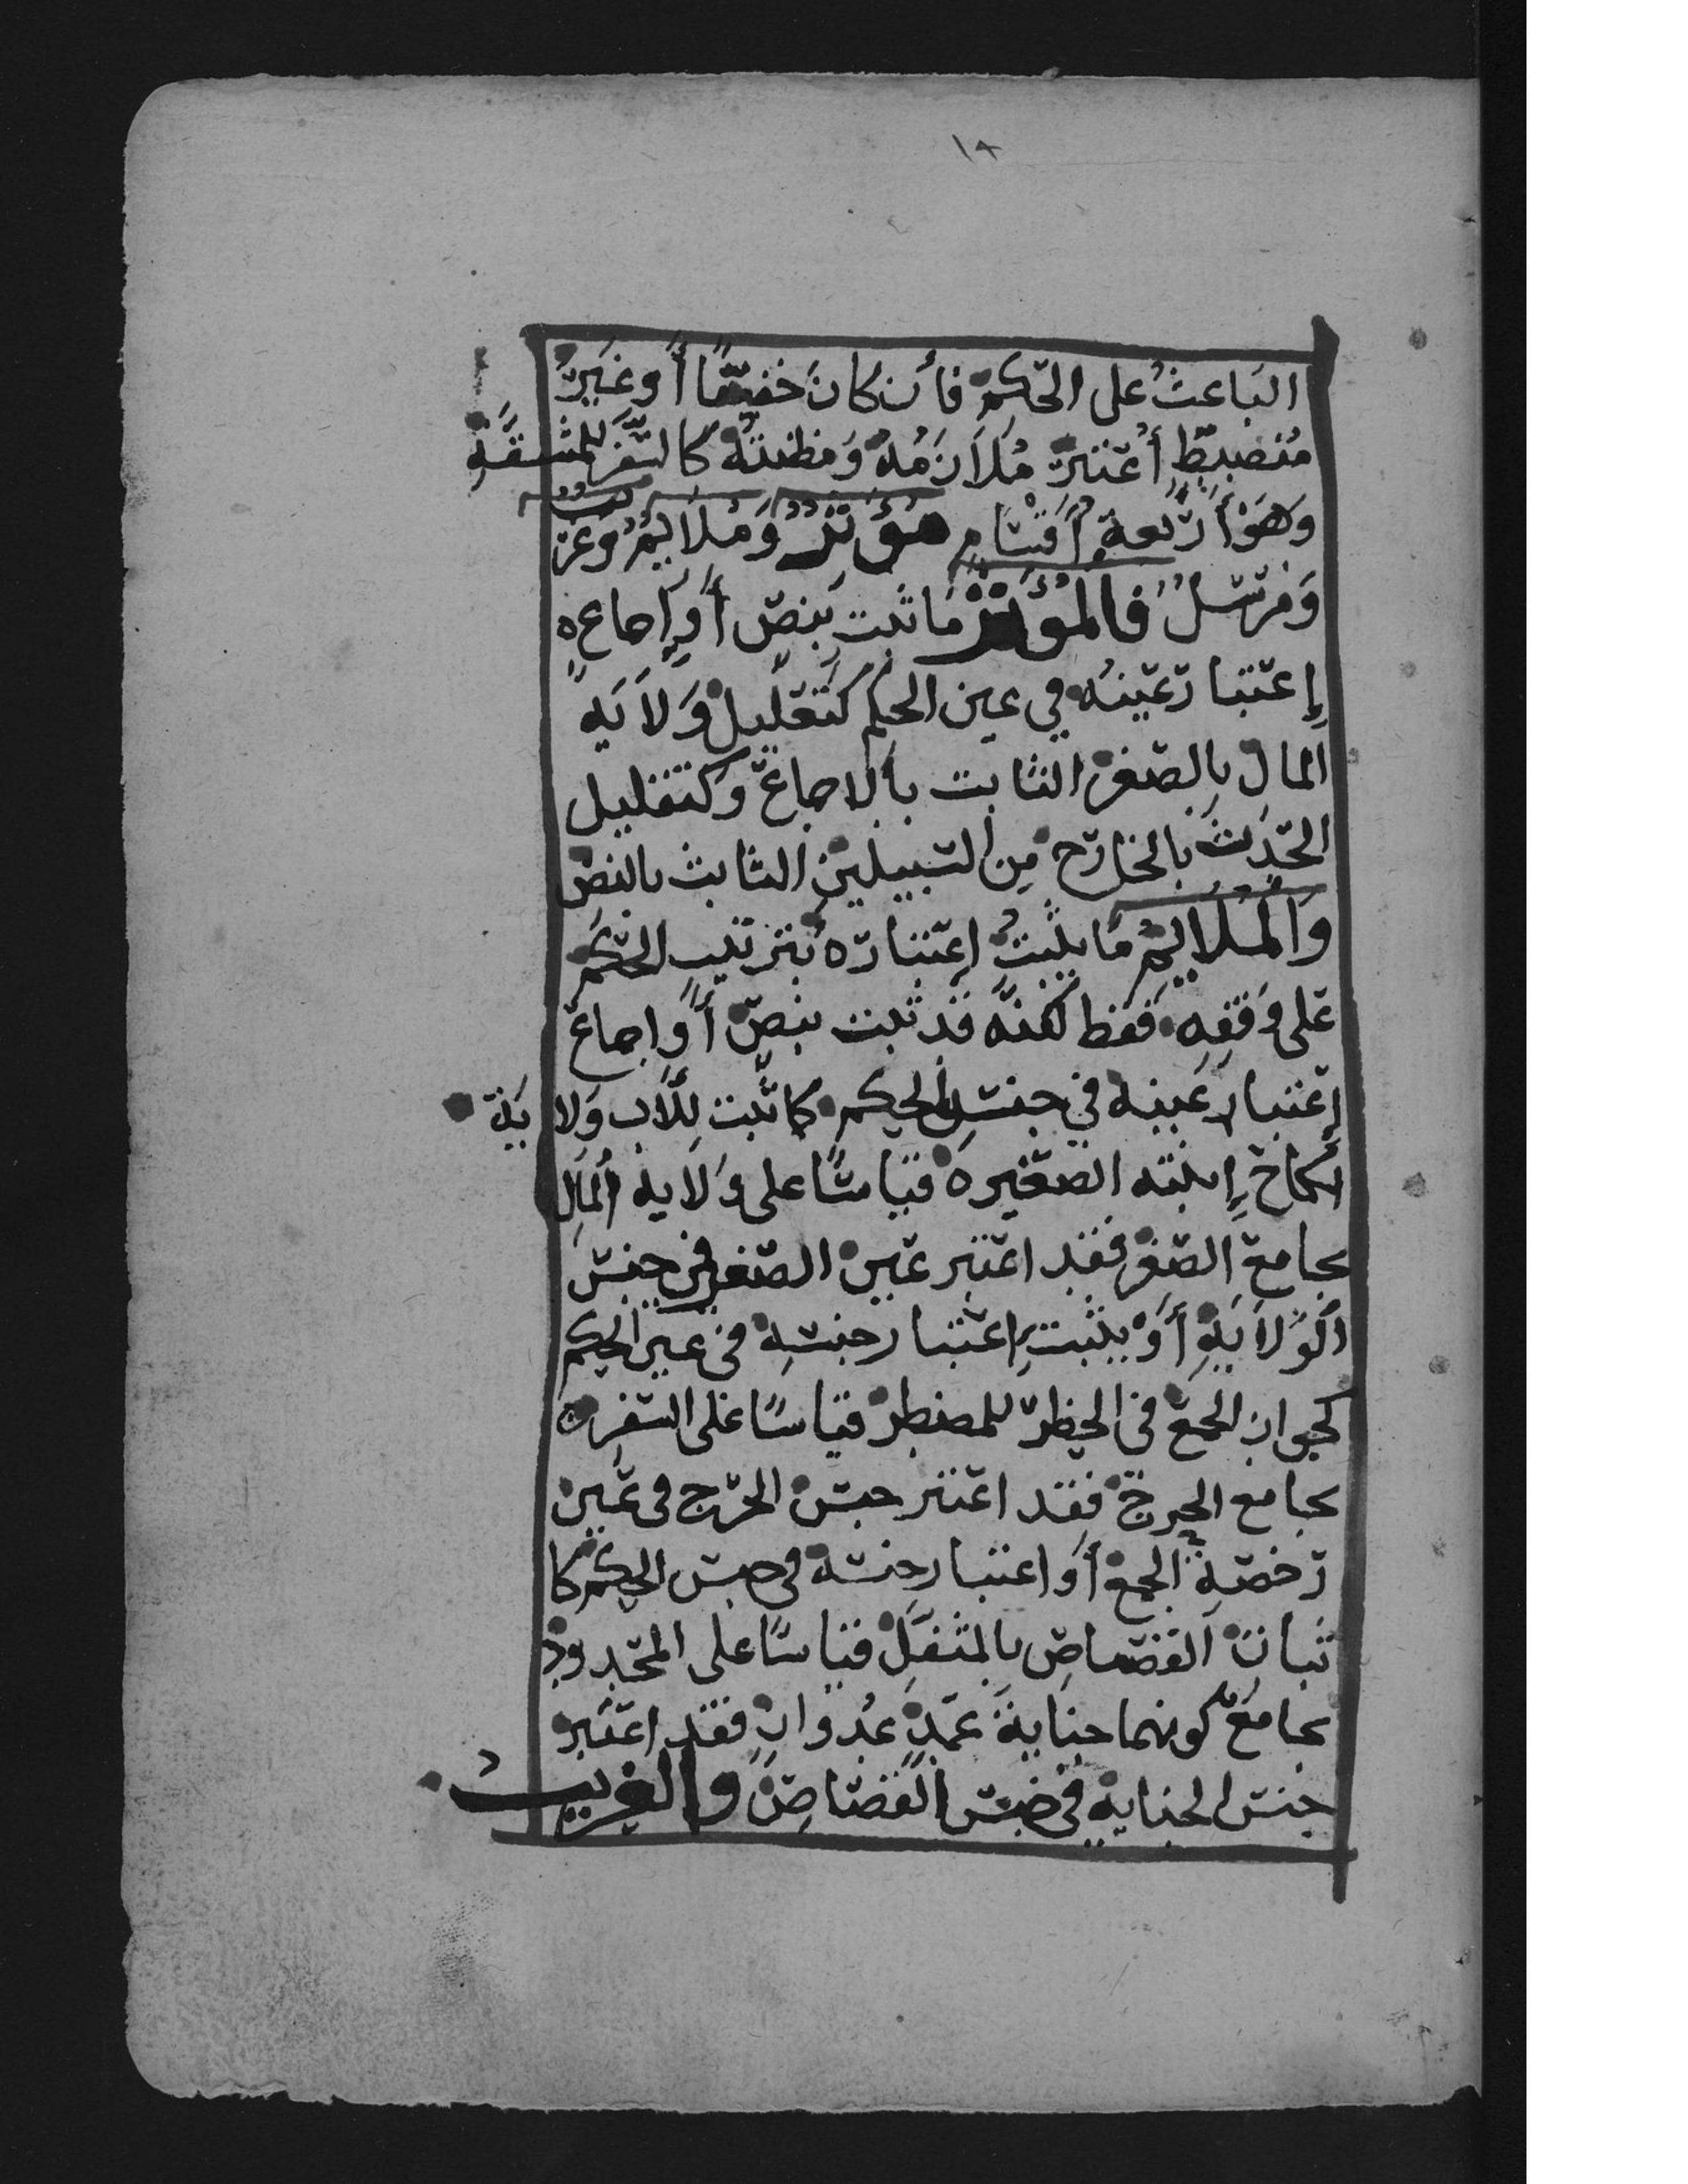 ١٨
الباعث على الحكم فأن كان خفيًّا أو غير
منضبط أعتبر ملازمه ومظنته كالسفر للمشقة
وهو أربعة أقسام مؤثر وملايم وغريب
ومرسل فالمؤثر ما ثبت بنص أو إجماع ه
إعتبار عينه في عين الحكم كتعليل ولاية
المال بالصغر الثابت بالاجماع وكتعليل
الحدث بالخارج من السبيلين الثابت بالنص
والملايم ما يثبت اعتباره بترتيب الحكم
على وفقه فقط لكنه قد ثبت بنص أو اجماع
إعتبار عينه في جنس الحكم كما ثبت للأب ولاية
نكاح إبنته الصغيره قياسًا على ولاية المال
بجامع الصغر فقد اعتبر عين الصغر في جنس
الولاية أو يثبت إعتبار جنسه في عين الحكم
كجواز الجمع في الحظر للمضطر قياسًا على السفر ه
بجامع الحرج فقد اعتبر جنس الحرج في عين
رخصة الجمع أو اعتبار جنسه في جنس الحكم كا
ثبات القصاص بالمثقل قياسًا على المحدود
بجامع كونهما جناية عمد عدوان فقد اعتبر
جنس الجناية في جنس القصاص والغريب